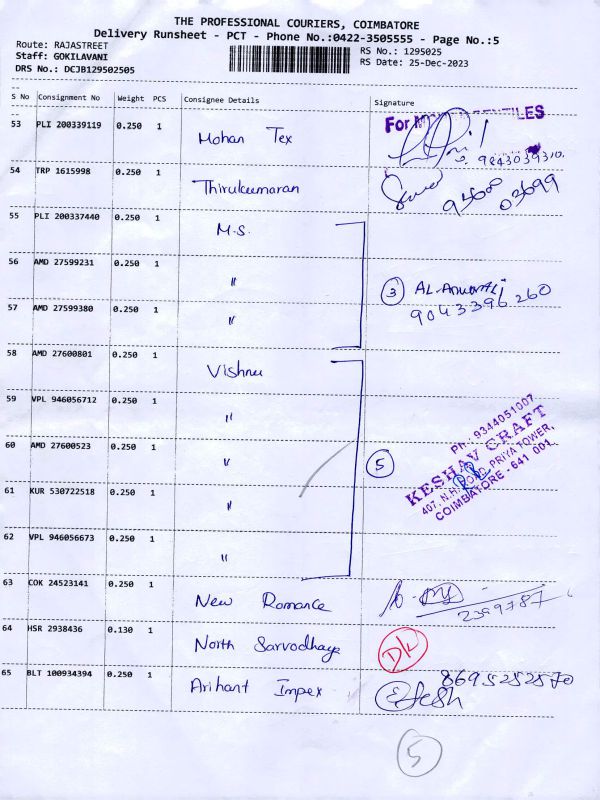 THE PROFESSIONAL COURIERS, COIMBATORE
Delivery Runsheet - PCT - Phone No.:0422-3505555 - Page No.:5
Route: RAJASTREET
Staff: GOKILAVANI
DRS No.: DCJB129502505
RS No.: 1295025
RS Date: 25-Dec-2023
S No Consignment No Weight PCS Consignee Details Signature
53 PLI 200339119 0.250 1 Mohan Tex
For TILES
9843039310.
54 TRP 1615998 0.250 1 Thirukumaran
03699
55 PLI 200337440 0.250 1 M.S.
56 AMD 27599231 0.250 1 "
3 9043396260
57 AMD 27599380 0.250 1 "
58 AMD 27600801 0.250 1 Vishnu
59 VPL 946056712 0.250 1 "
60 AMD 27600523 0.250 1 "
5
Ph : 9344051007
KESHAV CRAFT
407, N.H. ROAD, PRIYA TOWER,
COIMBATORE - 641 001.
61 KUR 530722518 0.250 1 "
62 VPL 946056673 0.250 1 "
63 COK 24523141 0.250 1 New Romance
2399787
64 HSR 2938436 0.130 1 North Sarvodhaya
Dk
65 BLT 100934394 0.250 1 Arihant Impex
8695252570
5